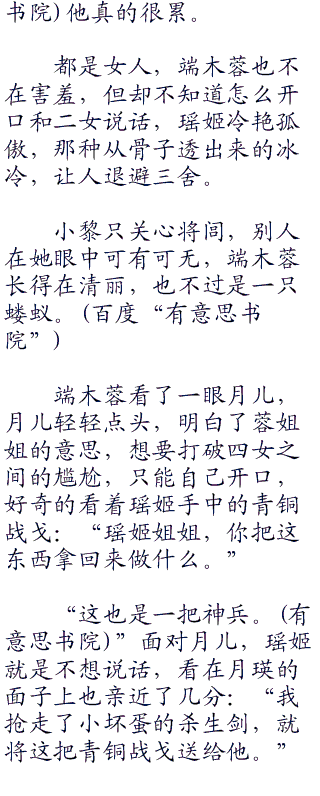 书院)他真的很累。
都是女人，端木蓉也不
在害羞，但却不知道怎么开
口和二女说话，瑶姬冷艳孤
傲，那种从骨子透出来的冰
冷，让人退避三舍。
小黎只关心将闾，别人
在她眼中可有可无，端木蓉
长得在清丽，也不过是一只
蝼蚁。(百度“有意思书
院”)
端木蓉看了一眼月儿，
月儿轻轻点头，明白了蓉姐
姐的意思，想要打破四女之
间的尴尬，只能自己开口，
好奇的看着瑶姬手中的青铜
战戈：“瑶姬姐姐，你把这
东西拿回来做什么。”
“这也是一把神兵。(有
意思书院)”面对月儿，瑶姬
就是不想说话，看在月瑛的
面子上也亲近了几分：“我
抢走了小坏蛋的杀生剑，就
将这把青铜战戈送给他。”